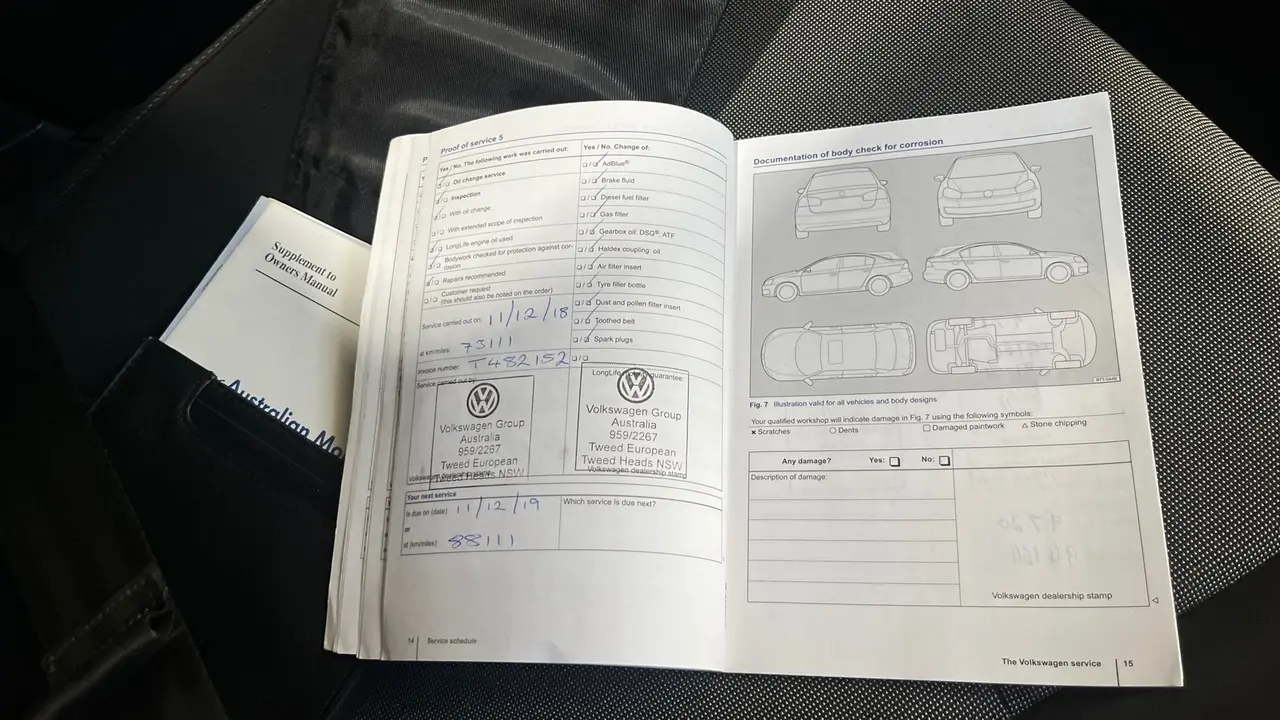 Supplement to
Owners Manual
Australian Mo
Proof of service 5
Yes / No. The following work was carried out:
Oil change service
Inspection
With oil change
With extended scope of inspection
LongLife engine oil used
Bodywork checked for protection against cor-
rosion
Repairs recommended
Customer request
(this should also be noted on the order)
Service carried out on: 11/12/18
at km/miles: 73111
Invoice number: T482152
Service carried out by:
Volkswagen Group
Australia
959/2267
Tweed European
Tweed Heads NSW
Yes / No. Change of:
AdBlue®
Brake fluid
Diesel fuel filter
Gas filter
Gearbox oil: DSG®, ATF
Haldex coupling: oil
Air filter insert
Tyre filler bottle
Dust and pollen filter insert
Toothed belt
Spark plugs
LongLife guarantee:
Volkswagen Group
Australia
959/2267
Tweed European
Tweed Heads NSW
Volkswagen dealership stamp
Your next service
Is due on (date) 11/12/19
or
at (km/miles): 88111
Which service is due next?
14 Service schedule
Documentation of body check for corrosion
Fig. 7 Illustration valid for all vehicles and body designs
Your qualified workshop will indicate damage in Fig. 7 using the following symbols:
× Scratches ○ Dents □ Damaged paintwork △ Stone chipping
Any damage? Yes: □ No: □
Description of damage:
Volkswagen dealership stamp
The Volkswagen service 15